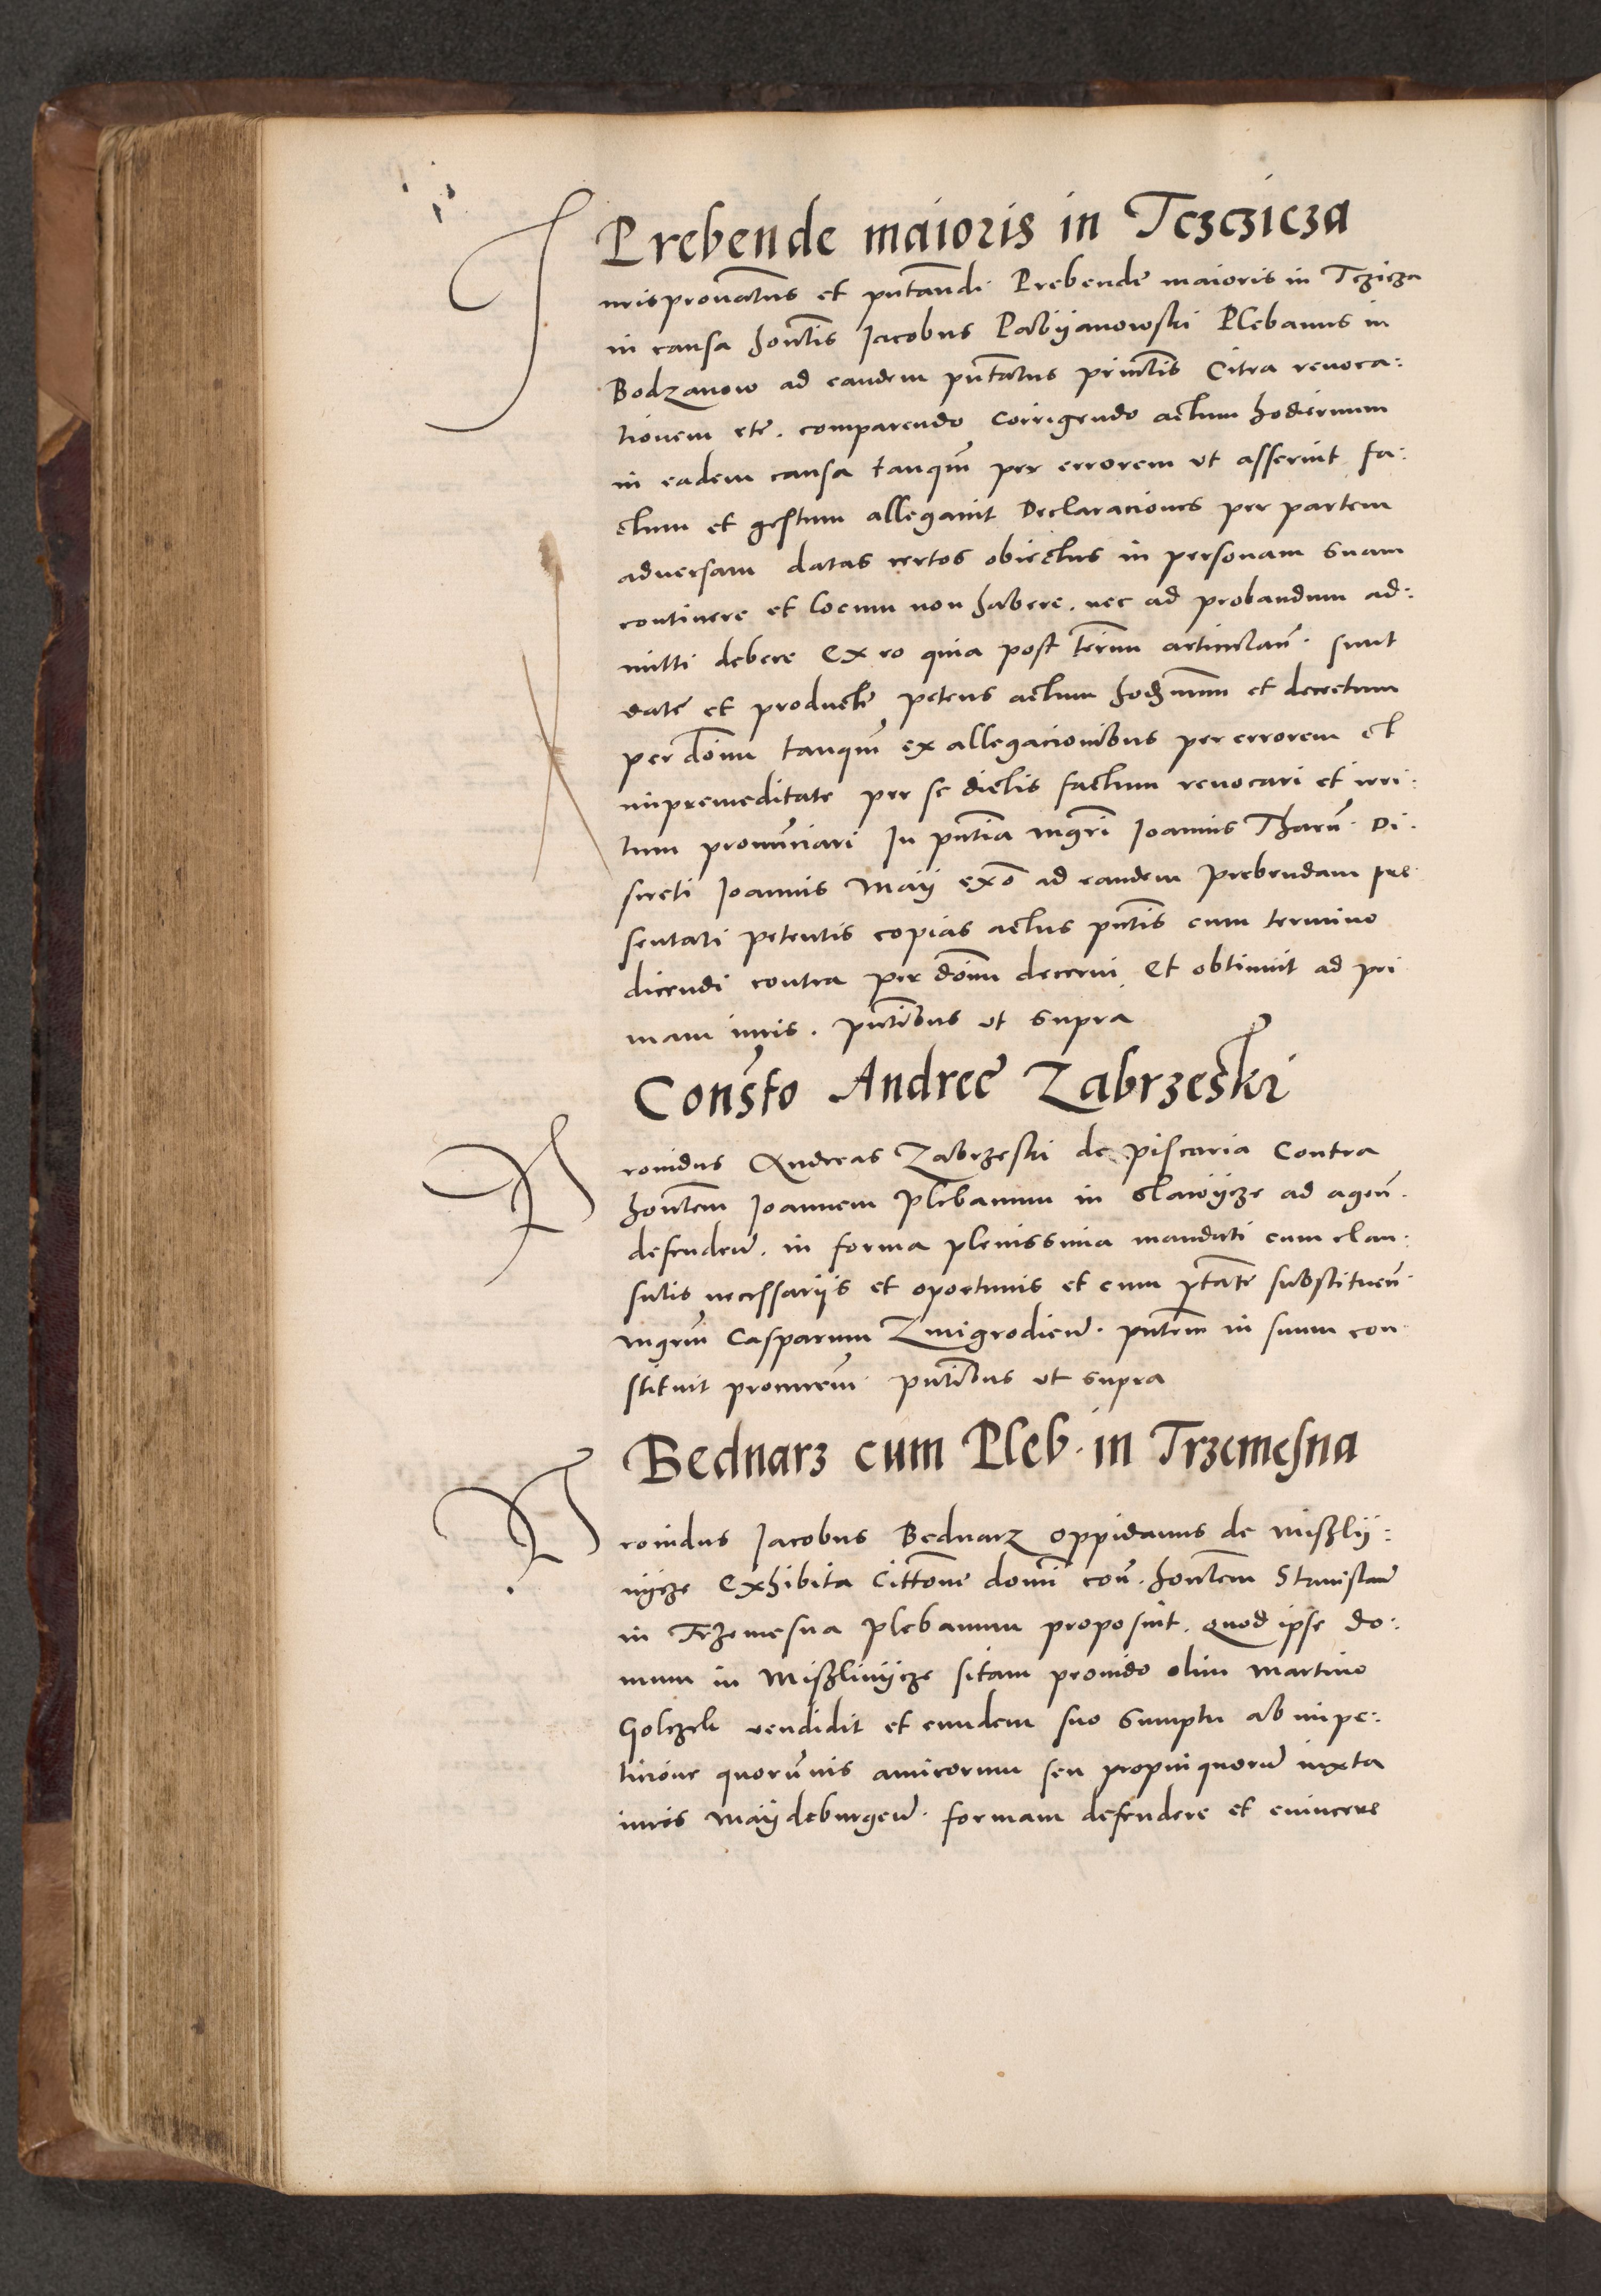 Prebende maioris in Tczczicza
Jurispronatus et pntandi Prebende maioris in Tczicza
in causa hontis Jacobus Pabyanowski Plebanus in
Bodzanow ad eandem pntatus princtis Citra reuoca:
tionem etc. comparendo Corrigendo actum hodiernum
in eadem causa tanqm per errorem vt asseruit fa:
ctum et gestum allegauit Declaraciones per partem
aduersam datas certos obiectus in personam suam
continere et locum non habere. nec ad probandum ad:
mitti debere Ex eo quia post terimu articulan. sunt
date et producte petens actum hodiernum et decretum
per dnm tanqm ex allegacionibus per errorem et
impremeditate per se dictis factum reuocari et irri:
tum pronunciari In pntia mgri Joannis Tharn. Di.
screti Joannis Maij exo ad eandem Prebendam pre
sentati petentis copias actus pntis cum termino
dicendi contra per dnm decerni Et obtinuit ad pri
mam iuris. pntibus vt supra
Consto Andree Zabrzeski
Prouidus Andreas Zabrzeski de piscaria Contra
hontem Joannem Plebanum in Slawycze ad agen.
defenden. in forma plenissima mandati cum clau:
sulis necessariis et oportunis et cum ptate substituen.
mgrm Casparum Zmigrodien. pntem in suum con
stituit procurem pntibus vt supra
Bednarz cum Pleb. in Trzemesna
Prouidus Jacobus Bednarz oppidanus de Mißly:
nycze Exhibita Cittone domi con. hontem Stanislaum
in Trzemesna Plebanum proposuit. quod ipse do:
mum in Mißlinycze sitam prouido olim Martino
Golczek vendidit et eundem suo sumptu ab impe:
ticione quorumuis amicorum seu propinquorum iuxta
iuris Maydeburgen. formam defendere et euincere